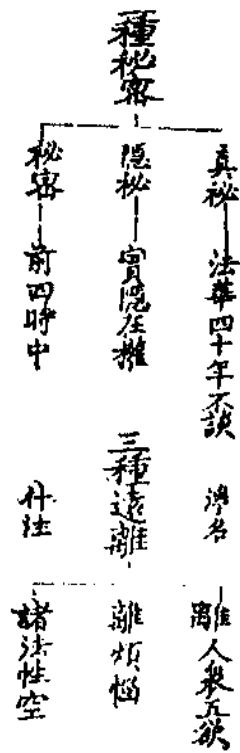 種秘密
真秘 法華四十年不談
隱秘 實隱在權
秘密 前四時中
三種遠離
離人衆五欲
離煩惱
諸法性空